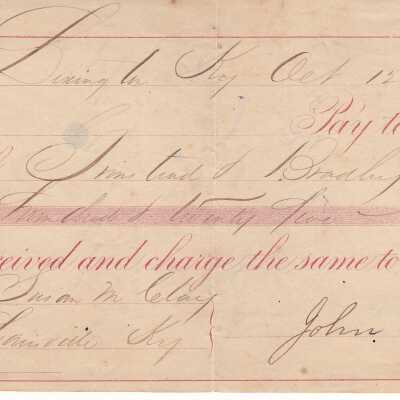 Lexington Ky Oct 12
Pay to
Grinstead & Bradley
hundred & twenty five
ceived and charge the same to
Susan M Clay
Louisville Ky
John